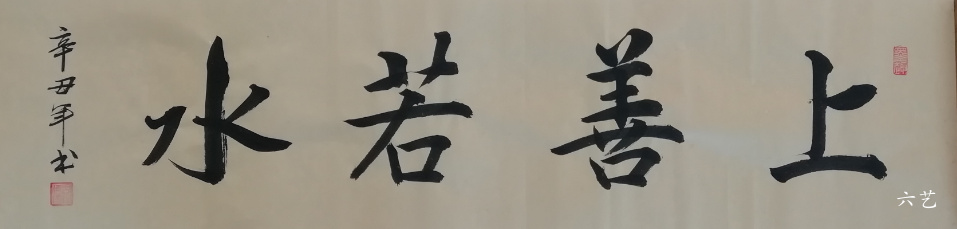 上善若水
辛丑年书
六艺